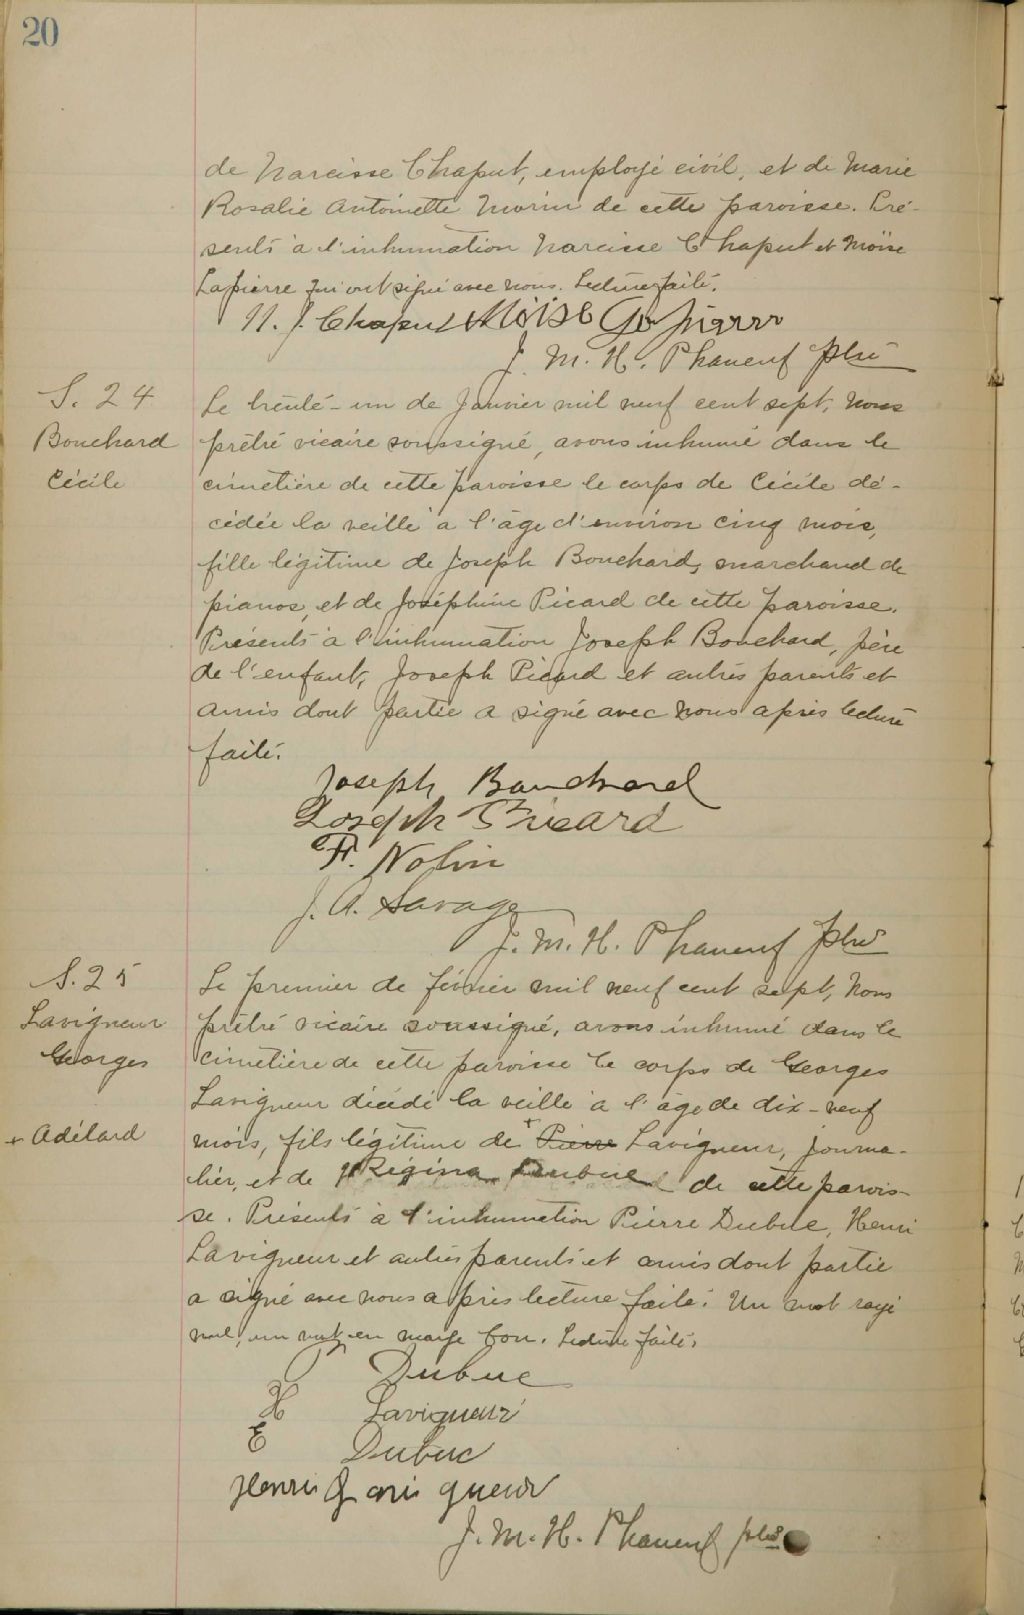 20
de Narcisse Chaput, employé civil, et de Marie
Rosalie Antoinette Morin de cette paroisse. Pré-
sents à l'inhumation Narcisse Chaput et Moïse
Lapierre qui ont signé avec nous. Lecture faite.
N. J. Chaput Moïse Lapierre
J. M. H. Phaneuf ptre
S. 24
Bouchard
Cécile
Le trente-un de Janvier mil neuf cent sept, Nous
prêtre vicaire soussigné, avons inhumé dans le
cimetière de cette paroisse le corps de Cécile dé-
cédée la veille à l'âge d'environ cinq mois,
fille légitime de Joseph Bouchard, marchand de
pianos, et de Joséphine Picard de cette paroisse.
Présents à l'inhumation Joseph Bouchard, père
de l'enfant, Joseph Picard et autres parents et
amis dont partie a signé avec nous après lecture
faite.
Joseph Bouchard
Joseph Picard
F. Nolin
J. A. Savage
J. M. H. Phaneuf ptre
S. 25
Lavigueur
Georges
+ Adélard
Le premier de février mil neuf cent sept, Nous
prêtre vicaire soussigné, avons inhumé dans le
cimetière de cette paroisse le corps de Georges
Lavigueur décédé la veille à l'âge de dix-neuf
mois, fils légitime de + Pierre Lavigueur, journa-
lier, et de Régina Dubuc de cette parois-
se. Présents à l'inhumation Pierre Dubuc, Henri
Lavigueur et autres parents et amis dont partie
a signé avec nous après lecture faite. Un mot rayé
nul, un mot en marge bon. Lecture faite.
P Dubuc
H Lavigueur
E Dubuc
Henri Lavigueur
J. M. H. Phaneuf ptre